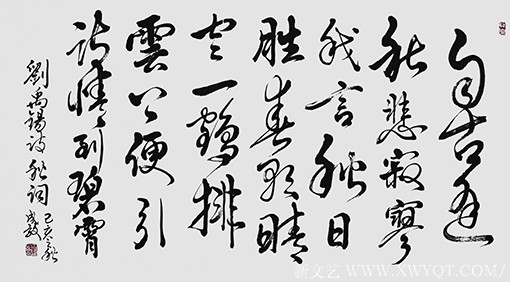 自古逢
秋悲寂寥
我言秋日
胜春朝晴
空一鶴排
雲上便引
詩情到碧霄
劉禹錫詩秋詞
己亥之秋
新文艺 WWW.XWYQT.COM